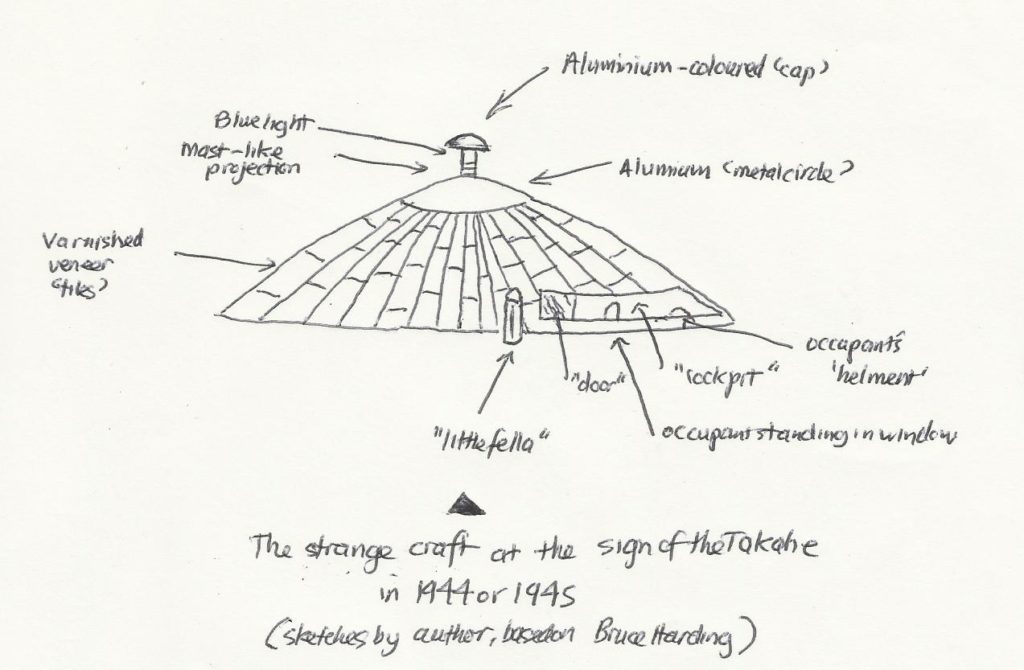 Aluminium-coloured (cap)
Blue light
Mast-like
projection
Alumium (metal circle)
Varnished
veneer
(tiles)
occupants
'helment'
"door"
"cockpit"
"little fella"
occupant standing in window
The strange craft at the sign of the Takahe
in 1944 or 1945
(sketches by author, based on Bruce Harding)